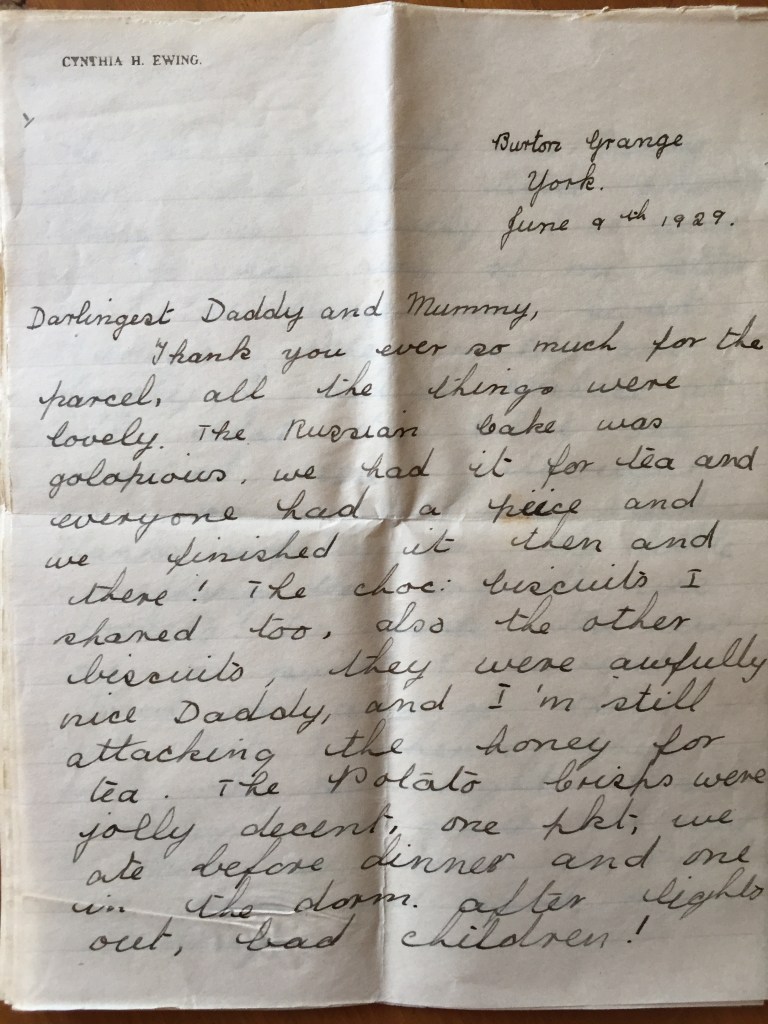 CYNTHIA H. EWING.
Burton Grange
York.
June 9th 1929.
Darlingest Daddy and Mummy,
Thank you ever so much for the
parcel, all the things were
lovely. The Russian Cake was
golopious, we had it for tea and
everyone had a peice and
we finished it then and
there! The choc: biscuits I
shared too, also the other
biscuits, they were awfully
nice Daddy, and I'm still
attacking the honey for
tea. The Potato Crisps were
jolly decent, one pkt, we
ate before dinner and one
in the dorm. after lights
out, bad children!